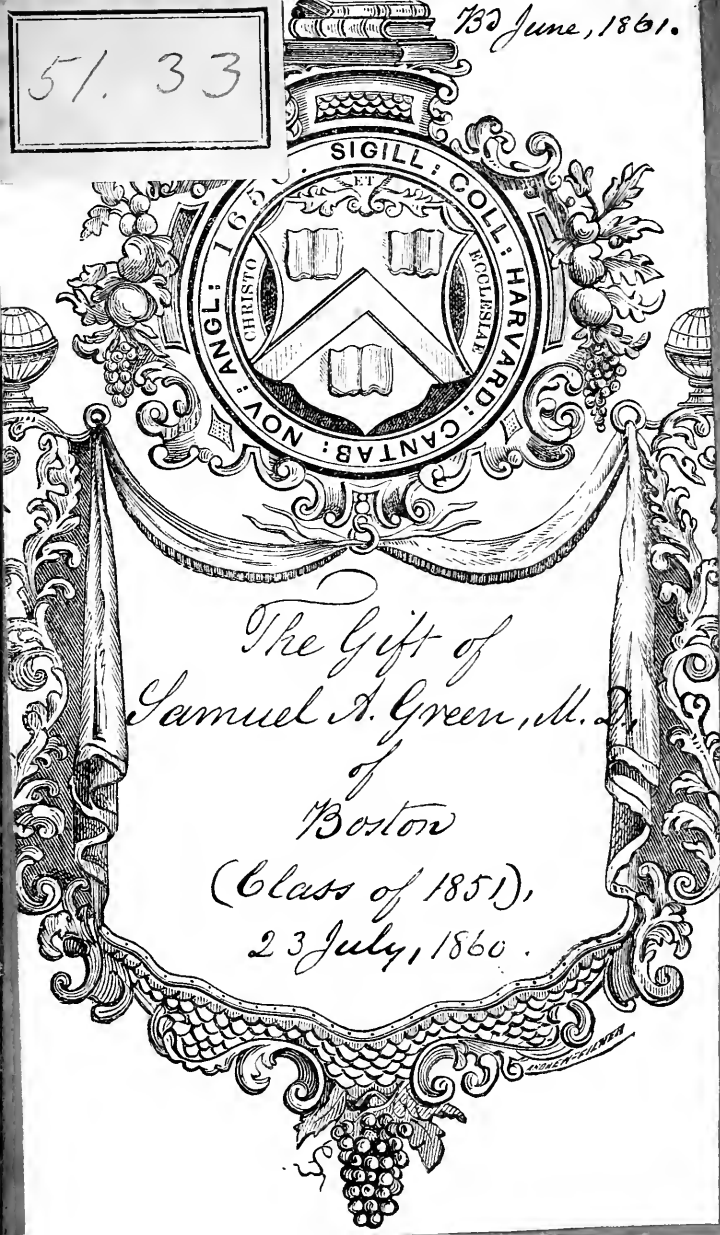 51. 33
Bd June, 1861.
SIGILL: COLL: HARVARD: CANTAB: NOV: ANGL: 1650.
ET
CHRISTO
ECCLESIAE
The Gift of
Samuel A. Green, M.D.,
of
Boston
(Class of 1851),
23 July, 1860.